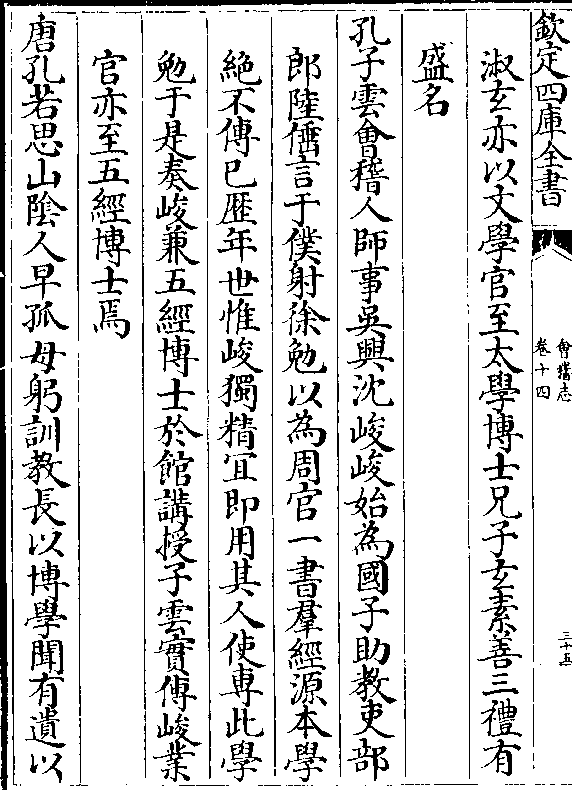 欽定四庫全書
會稽志
卷十四
三十五
淑玄亦以文學官至太學博士兄子玄素善三禮有
盛名
孔子雲會稽人師事吳興沈峻峻始為國子助教吏部
郎陸倕言于僕射徐勉以為周官一書羣經源本學
絶不傳已歴年世惟峻獨精宜即用其人使專此學
勉于是奏峻兼五經博士於館講授子雲實傳峻業
官亦至五經博士焉
唐孔若思山陰人早孤母躬訓教長以博學聞有遺以